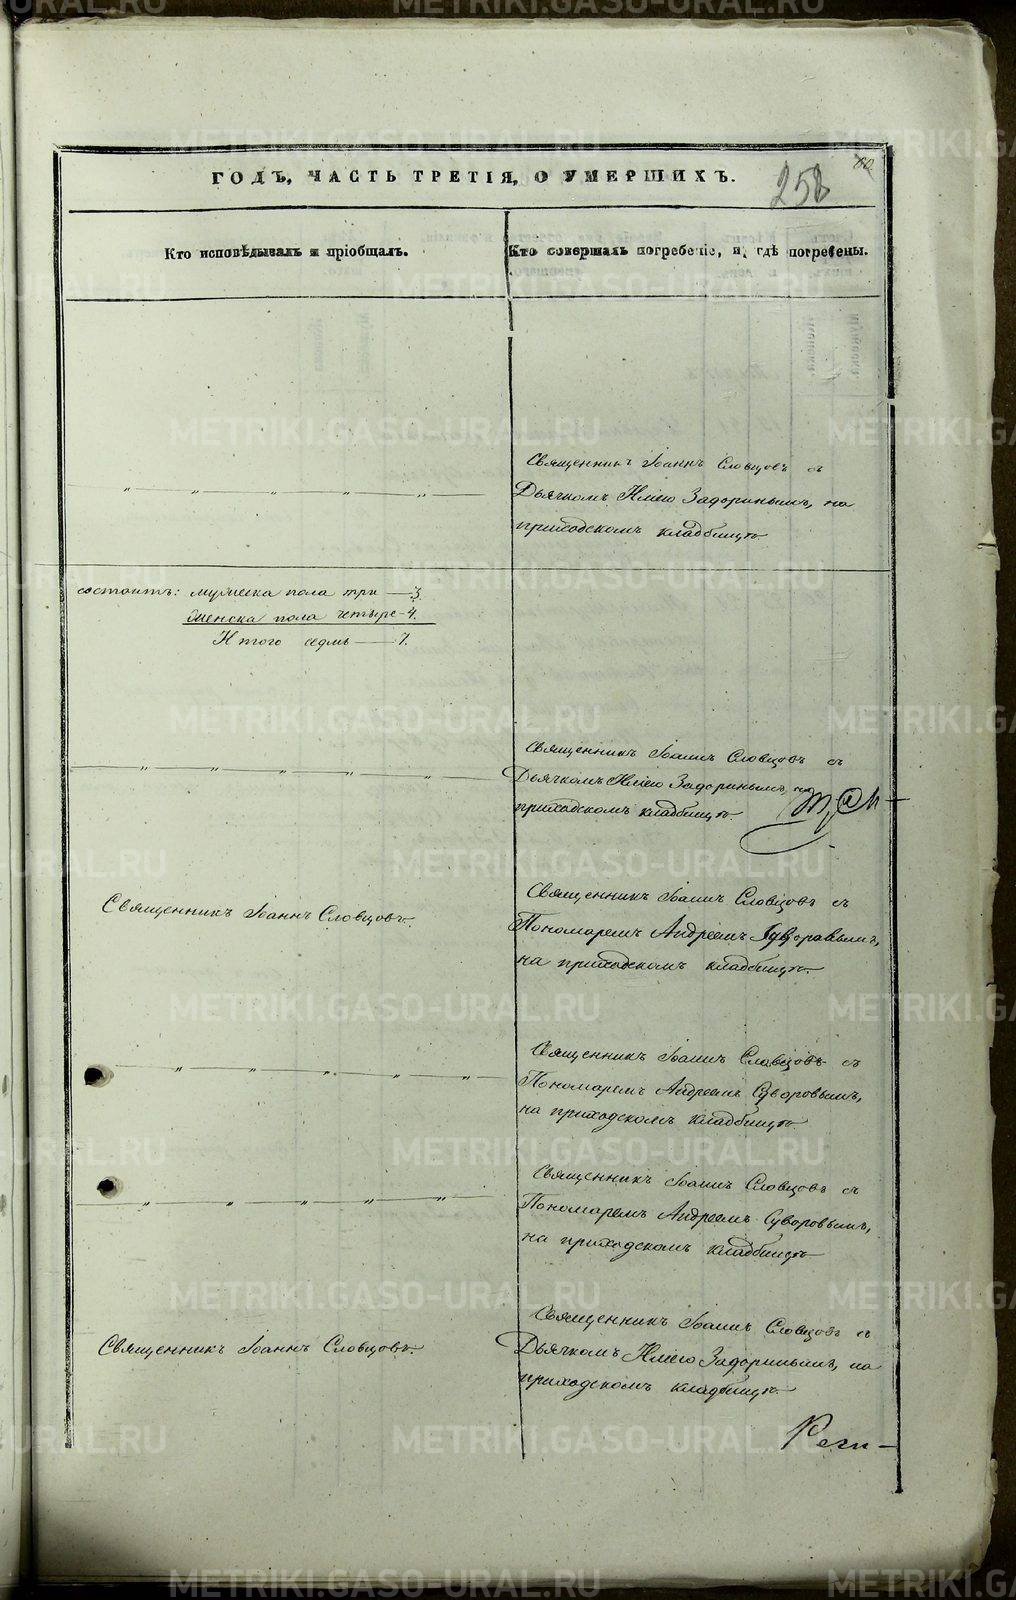 ГОДЪ, ЧАСТЬ ТРЕТІЯ, О УМЕРШИХЪ.
258
60
Кто исповѣдывалъ и пріобщалъ.
Кто совершалъ погребеніе, и гдѣ погребены.
Священникъ Іоаннъ Словцовъ съ
Дьячкомъ Иліею Задоринымъ, на
приходскомъ кладбищѣ
состоитъ: мужеска пола три — 3.
женска пола четыре — 4.
Итого седмь — 7.
Священникъ Іоаннъ Словцовъ съ
Дьячкомъ Иліею Задоринымъ, на
приходскомъ кладбищѣ.
Священникъ Іоаннъ Словцовъ.
Священникъ Іоаннъ Словцовъ съ
Пономаремъ Андреемъ Суворовымъ,
на приходскомъ кладбищѣ.
Священникъ Іоаннъ Словцовъ съ
Пономаремъ Андреемъ Суворовымъ,
на приходскомъ кладбищѣ
Священникъ Іоаннъ Словцовъ съ
Пономаремъ Андреемъ Суворовымъ,
на приходскомъ кладбищѣ
Священникъ Іоаннъ Словцовъ.
Священникъ Іоаннъ Словцовъ съ
Дьячкомъ Иліею Задоринымъ, на
приходскомъ кладбищѣ
METRIKI.GASO-URAL.RU